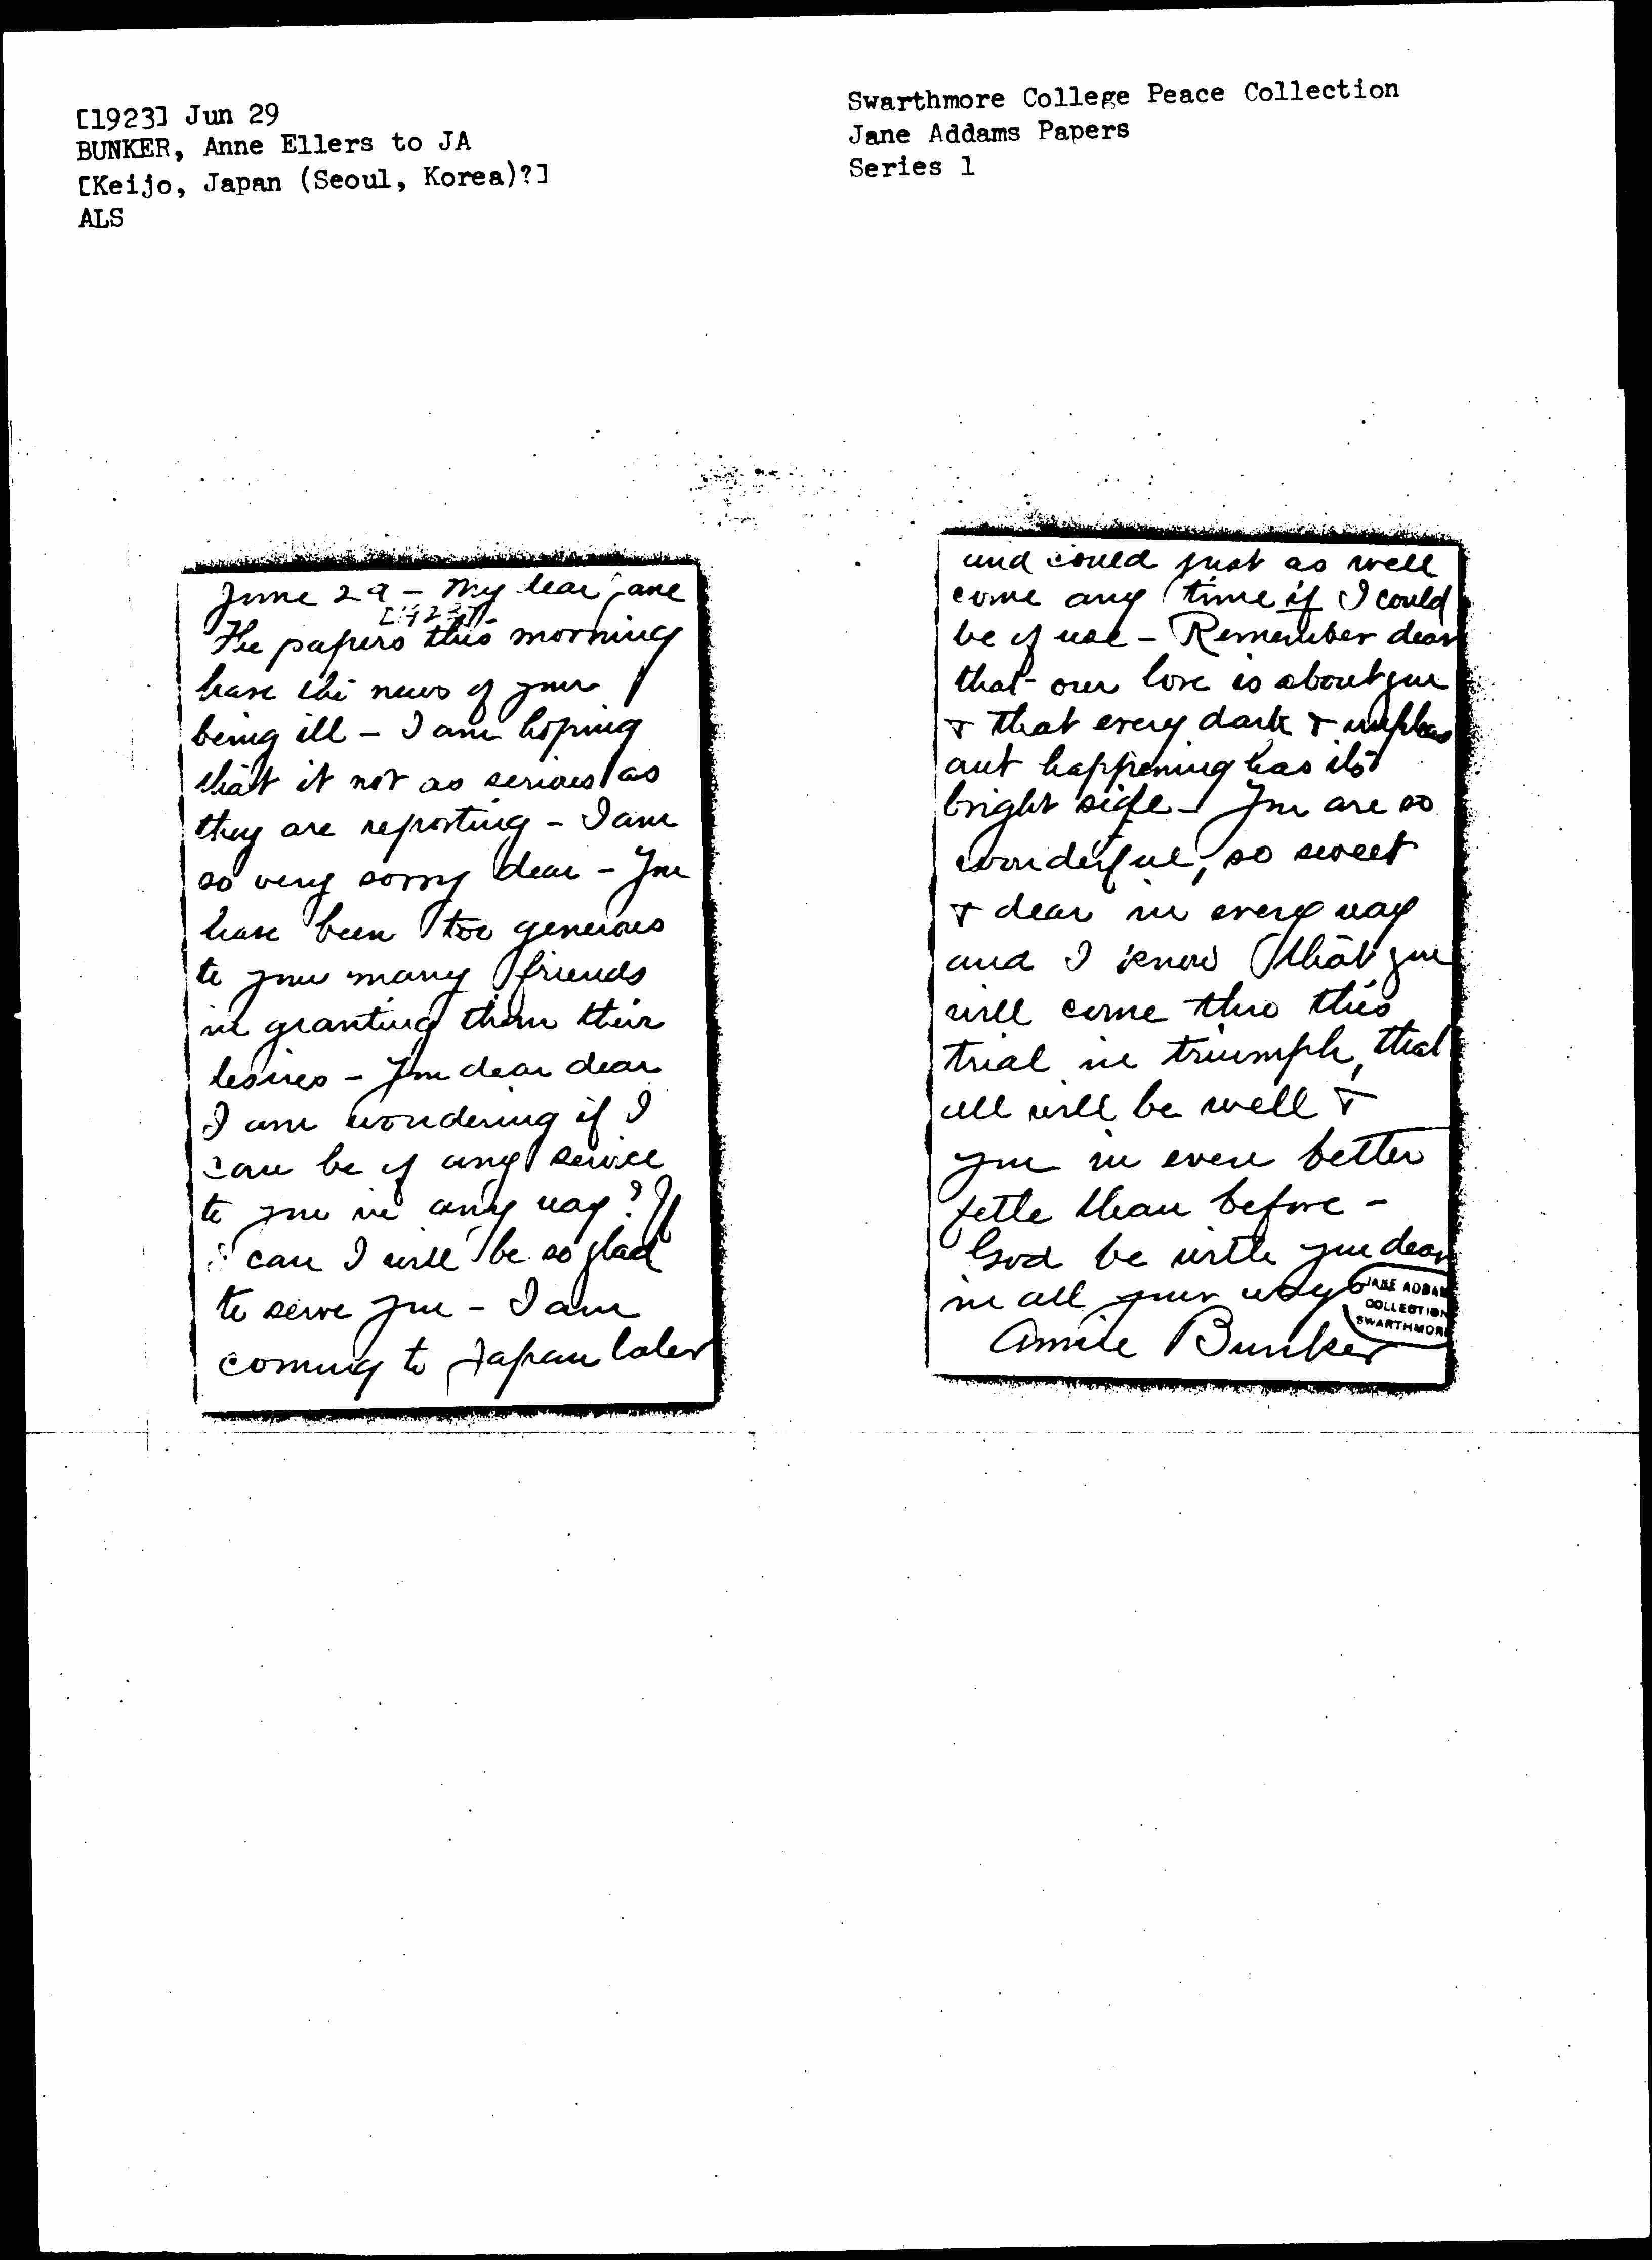 [1923] Jun 29
BUNKER, Anne Ellers to JA
[Keijo, Japan (Seoul, Korea)?]
ALS
Swarthmore College Peace Collection
Jane Addams Papers
Series 1
June 29 - My dear Jane
[1923]
The papers this morning
have the news of your
being ill - I am hoping
that it not as serious as
they are reporting - I am
so very sorry dear - You
have been too generous
to your many friends
in granting them their
desires - You dear dear
I am wondering if I
can be of any service
to you in any way? If
I can I will be so glad
to serve you - I am
coming to Japan later
and could just as well
come any time if I could
be of use - Remember dear
that our love is about you
& that every dark & unpleas
ant happening has its
bright side - You are so
wonderful, so sweet
& dear in every way
and I know that you
will come thro this
trial in triumph, that
all will be well &
you in even better
fettle than before -
God be with you dear
in all your ways
Annie Bunker
JANE ADDAM
COLLECTION
SWARTHMORE